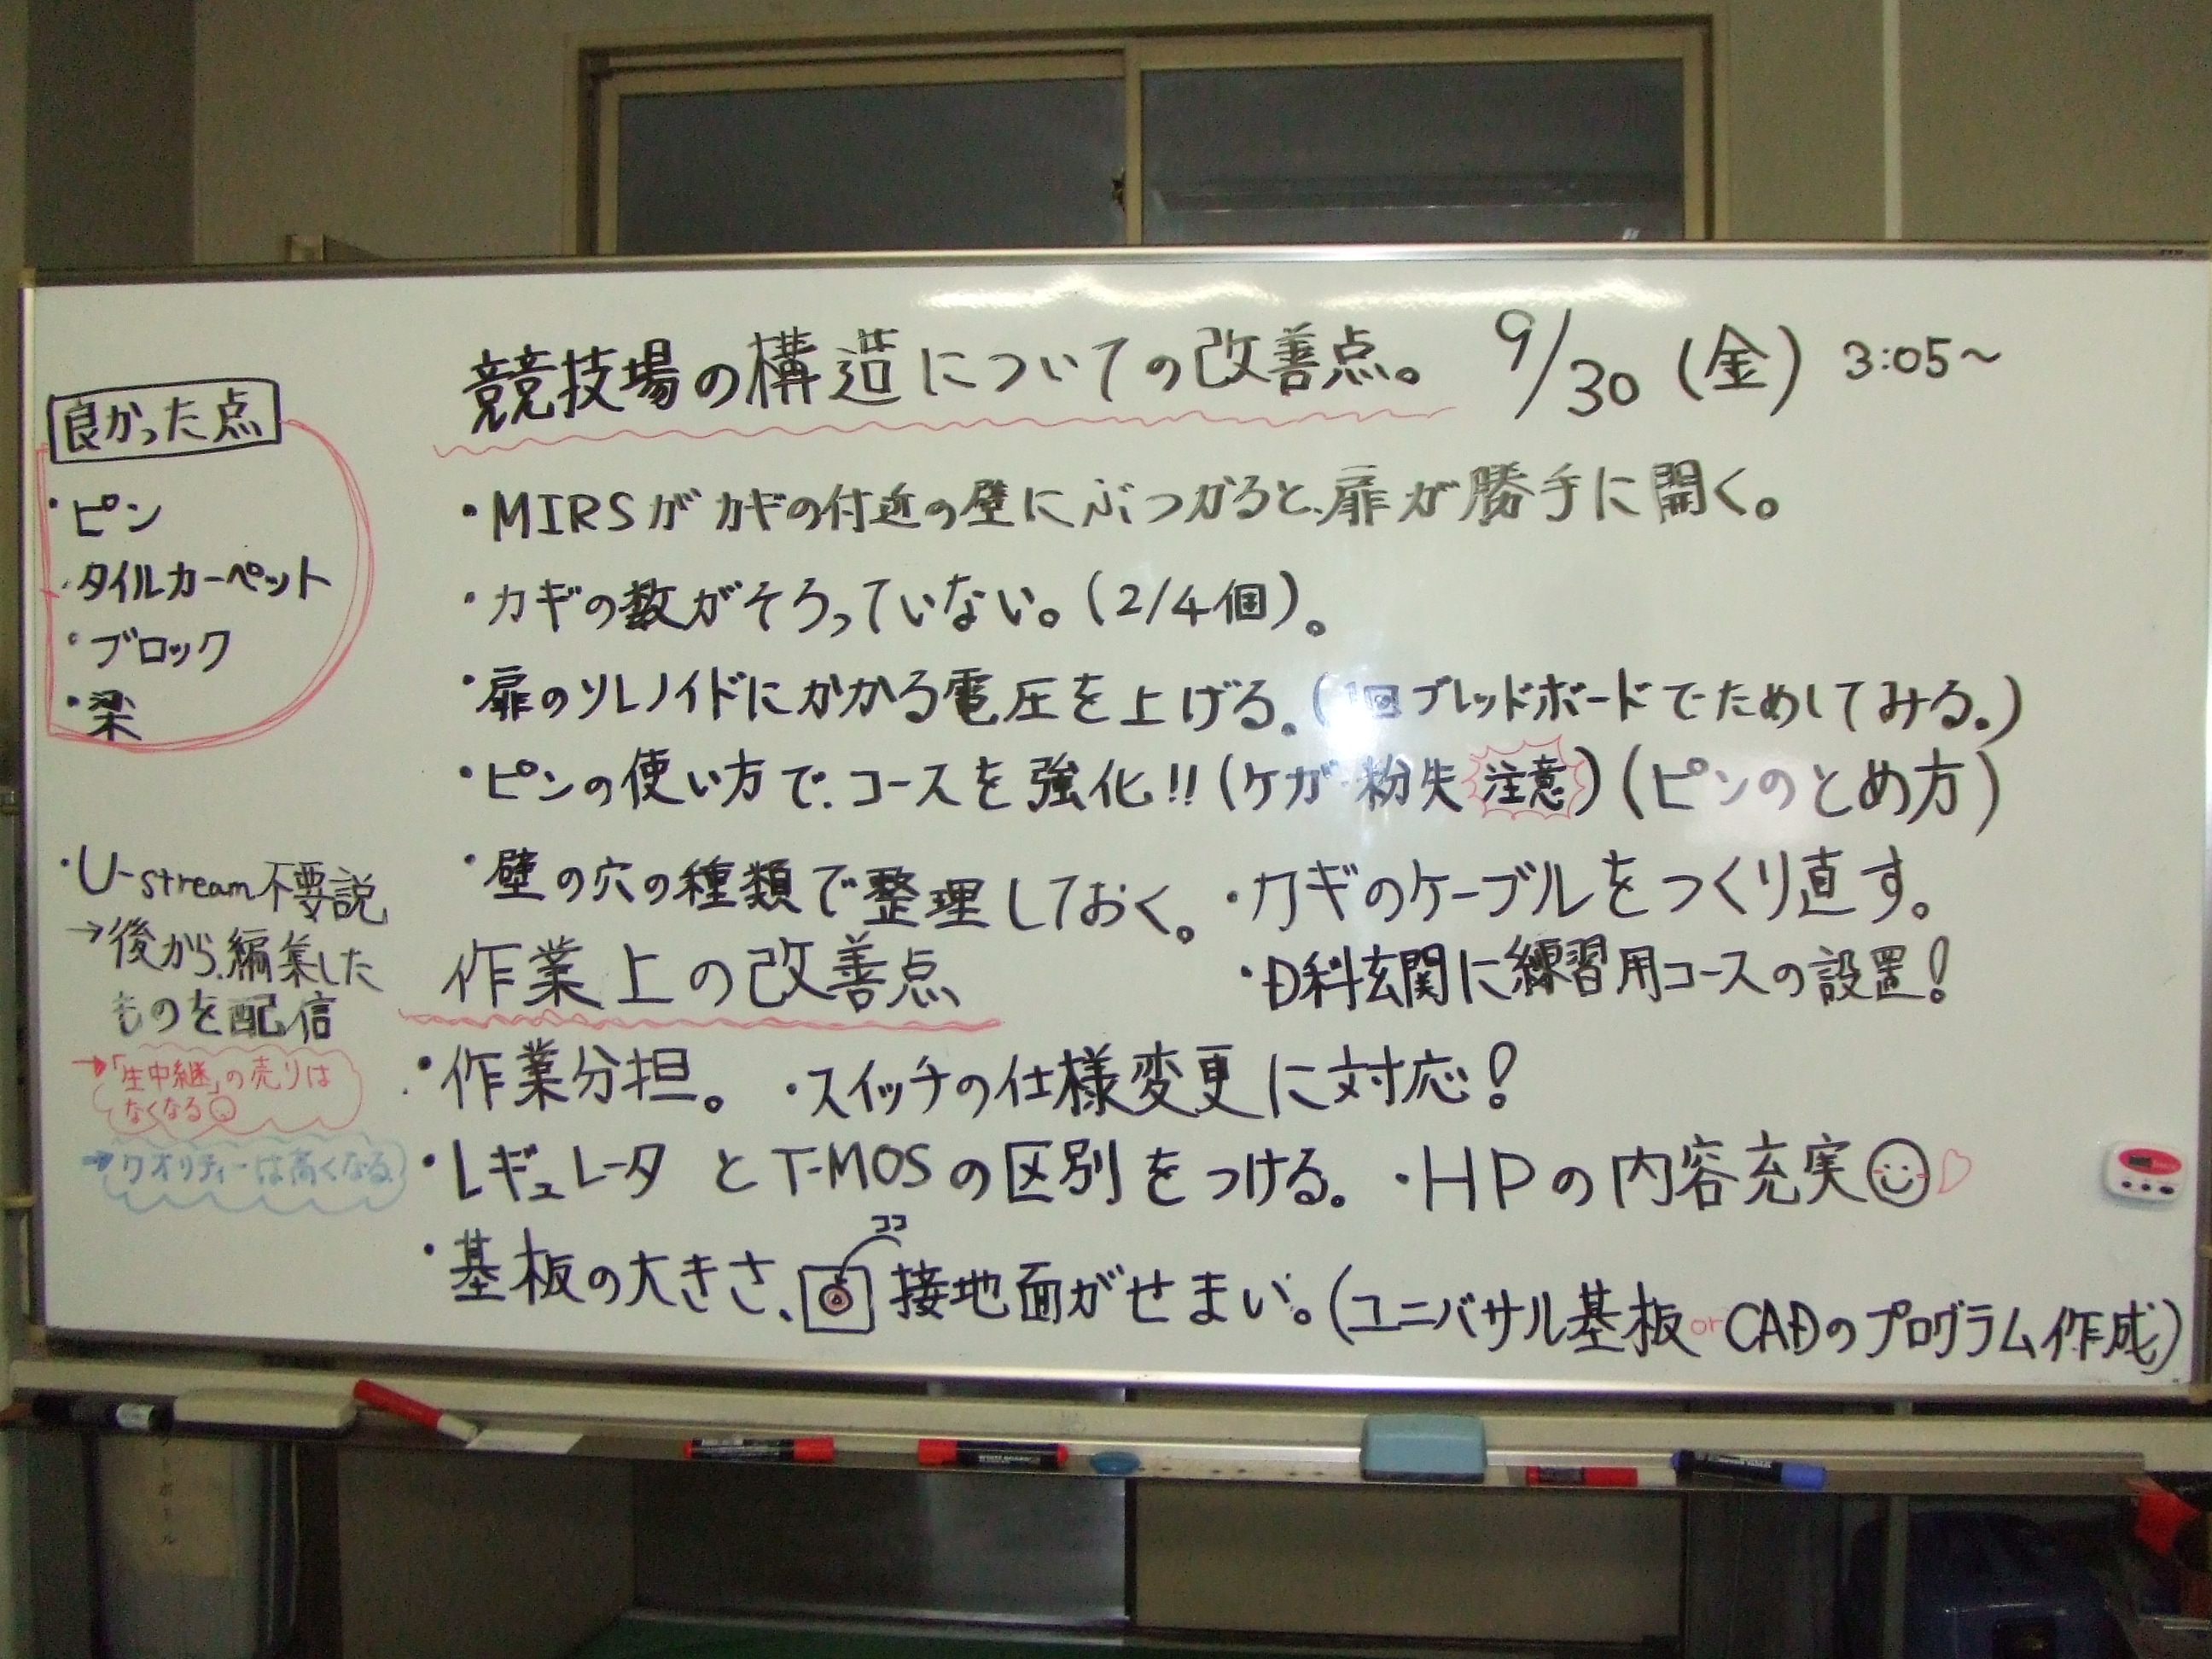 競技場の構造についての改善点。 9/30 (金) 3:05~
良かった点
・ピン
・タイルカーペット
・ブロック
・梁
・MIRSがカギの付近の壁にぶつかると、扉が勝手に開く。
・カギの数がそろっていない。(2/4個)。
・扉のソレノイドにかかる電圧を上げる。(1回ブレッドボードでためしてみる。)
・ピンの使い方で、コースを強化!!(ケガ・紛失注意)(ピンのとめ方)
・壁の穴の種類で整理しておく。 ・カギのケーブルをつくり直す。
・D科玄関に練習用コースの設置!
・U-stream不要説
→後から、編集した
ものを配信
→「生中継」の売りは
なくなる
→クオリティーは高くなる
作業上の改善点
・作業分担。 ・スイッチの仕様変更に対応!
・レギュレータとT-MOSの区別をつける。 ・HPの内容充実
ココ
・基板の大きさ、接地面がせまい。(ユニバサル基板orCADのプログラム作成)